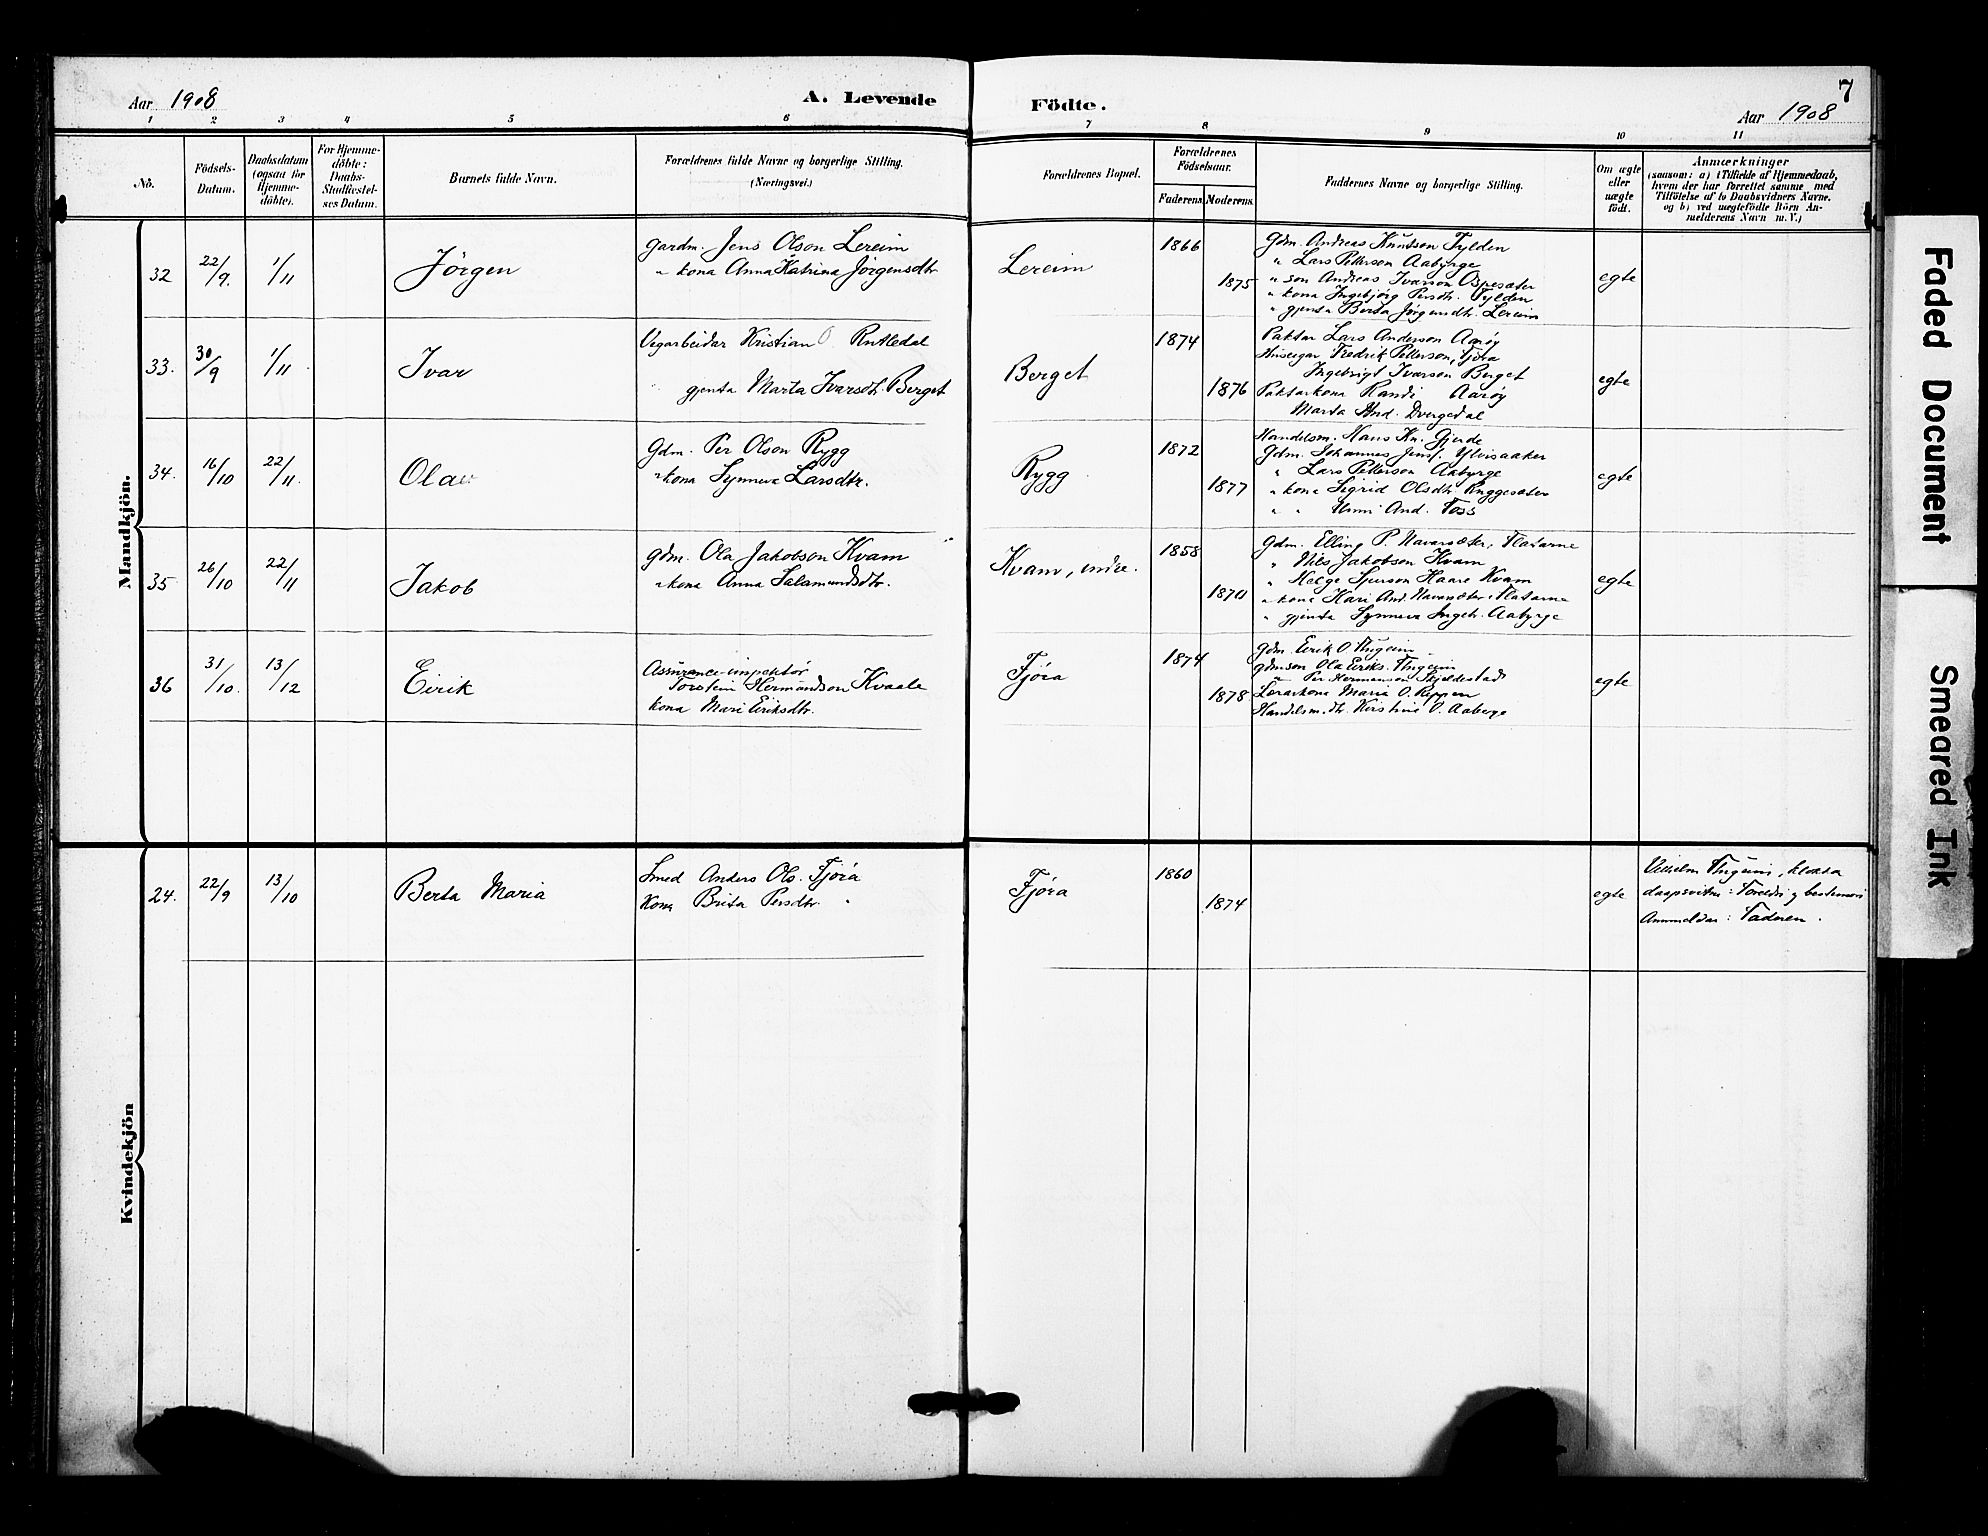 Aar 1908
A. Levende
Födte.
7
Aar 1908
1 2 3 4 5 6 7 8 9 10 11
No.
Födsels-
Datum.
Daabsdatum
(ogsaa for
Hjemme-
döbte).
For Hjemme-
döbte:
Daabs-
Stadfæstel-
ses Datum.
Barnets fulde Navn.
Forældrenes fulde Navne og borgerlige Stilling.
(Næringsvei.)
Forældrenes Bopæl.
Forældrenes
Födselsaar.
Faderens
Moderens
Faddernes Navne og borgerlige Stilling.
Om ægte
eller
uægte
födt.
Anmærkninger
(saasom: a) i Tilfælde af Hjemmedaab,
hvem der har forrettet samme med
Tilföielse af to Daabsvidners Navne.
og b) ved uegtefödte Börn An-
melderens Navn m. V.)
Mandkjön.
32
22/9.
1/11
Jörgen
Gardm. Jens Olson Lereim
" kona Anna Katrina Jörgensdtr
Lereim
1866
1875
Gdm. Andreas Knutson Fylden
" Lars Petterson Aabyrge
" son Andreas Ivarson Ospesæter
" kona Ingebjörg Persdtr. Fylden
" gjenta Berta Jörgensdtr. Lereim
egte
33.
30/9
1/11
Ivar
Vegarbeidar Kristian O. Rutledal
gjenta Marta Ivarsdtr. Berget
Berget
1874
1876
Paktar Lars Anderson Aaröy
Huseigar Fredrik Petterson, Fjöra
Ingebrigt Ivarson Berget
Paktarkona Randi Aaröy
Marta And. Dvergedal
egte
34.
16/10
22/11.
Olav
Gdm. Per Olson Rygg
" kona Synneva Larsdtr.
Rygg
1872
1877
Handelsm. Hans Kn. Gjerde
Gdm. Johannes Jens. Ylvisaaker
" Lars Petterson Aabyrge
" kona Sigrid Olsdtr. Ryggesæter
" " And. Foss
egte
35
26/10
22/11
Jakob
Gdm. Ola Jakobson Kvam
" kona Anna Salamundsdtr.
Kvam, indre.
1858
1870
Gdm. Elling P. Navarsæter, Flatarne
" Nils Jakobson Kvam
" Helge Sjurson Haare Kvam
" kona Kari And. Navarsæter, Flatarne
" gjenta Synneva Ingebr. Aabyrge
egte
36
31/10.
13/12
Eirik
Assurance-inspektör
Torstein Hermundson Kvaale
kona Mari Eiriksdtr.
Fjöra
1874
1878
Gdm. Eirik O. Thugeim
Gdmson Ola Eiriks. Thugeim
" Per Hermanson Skjeldestad
Lerarkona Maria O. Reppen
Handelsm.dtr. Kristine O. Aaberge
egte
Kvindekjön
24.
22/9
13/10
Berta Maria
Smed Anders Ols. Fjöra
Kona Brita Persdtr. "
Fjöra
1860
1874
egte
Vilhelm Thugeim, klokka
daapsvitne: Foreldri og bestemori
Anmeldar: Faderen.
Faded Document
Smeared Ink